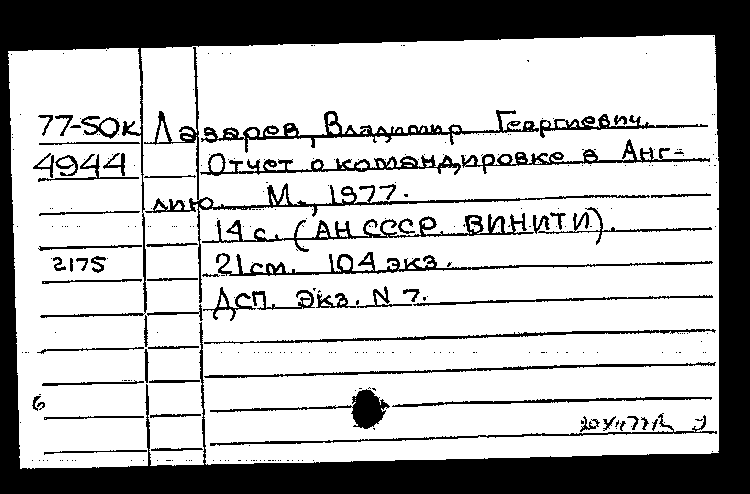 77-50к Лазарев, Владимир Георгиевич.
4944 Отчет о командировке в Анг-
лию. М., 1977.
14 с. (АН СССР. ВИНИТИ).
2175 21 см. 104 экз.
Дсп. Экз. N 7.
6